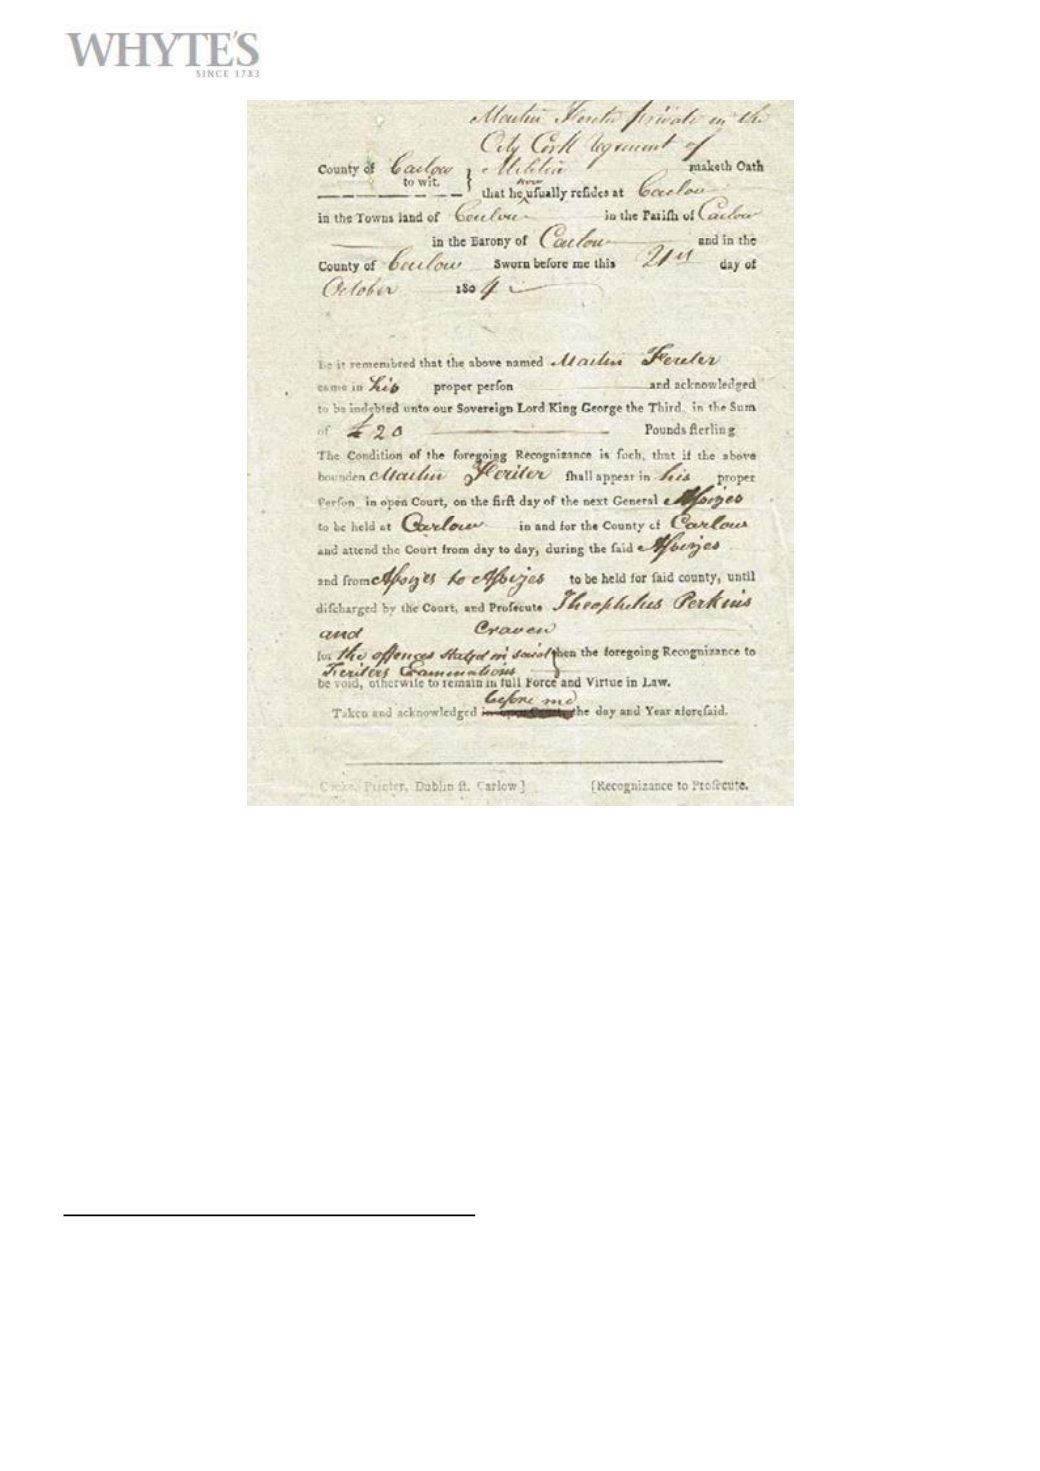 WHYTE'S
SINCE 1783
Martin Feriter private in the
City Cork Regiment of
County of Carlow } Militia maketh Oath
to wit. that he now uſually reſides at Carlow
in the Towns land of Carlow in the Pariſh of Carlow
in the Barony of Carlow and in the
County of Carlow Sworn before me this 21st day of
October 1804
Be it remembred that the above named Martin Feriter
came in his proper perſon and acknowledged
to be indebted unto our Sovereign Lord King George the Third, in the Sum
of £20 Pounds ſterling
The Condition of the foregoing Recognizance is ſuch, that if the above
bounden Martin Feriter ſhall appear in his proper
Perſon in open Court, on the firſt day of the next General Aſsizes
to be held at Carlow in and for the County of Carlow
and attend the Court from day to day, during the ſaid Aſsizes
and from Aſsizes to Aſsizes to be held for ſaid county, until
diſcharged by the Court, and Proſecute Theophilus Perkins
and Craven
for the offences stated in said then the foregoing Recognizance to
Feriters Examinations
be void, otherwiſe to remain in full Force and Virtue in Law.
before me
Taken and acknowledged in open Court, the day and Year aforeſaid.
Printer, Dublin ſt. Carlow] [Recognizance to Proſecute.